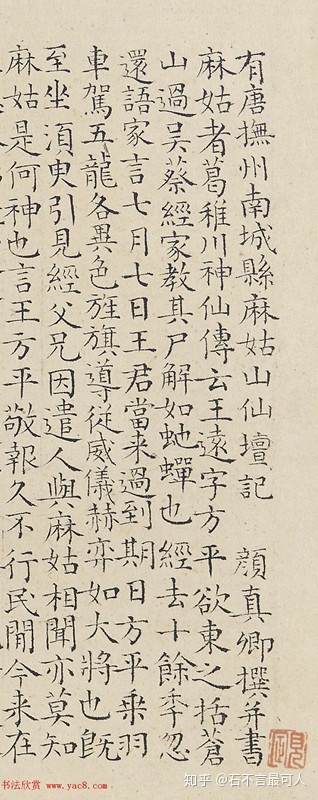 有唐撫州南城縣麻姑山仙壇記 顏真卿撰并書
麻姑者葛稚川神仙傳云王遠字方平欲東之括蒼
山過吴蔡經家教其尸解如虵蟬也經去十餘季忽
還語家言七月七日王君當来過到期日方平乗羽
車駕五龍各異色旌旗導従威儀赫弈如大將也旣
至坐須臾引見經父兄因遣人與麻姑相聞亦莫知
麻姑是何神也言王方平敬報久不行民間今来在
书法欣赏 www.yac8.com
知乎 @石不言最可人